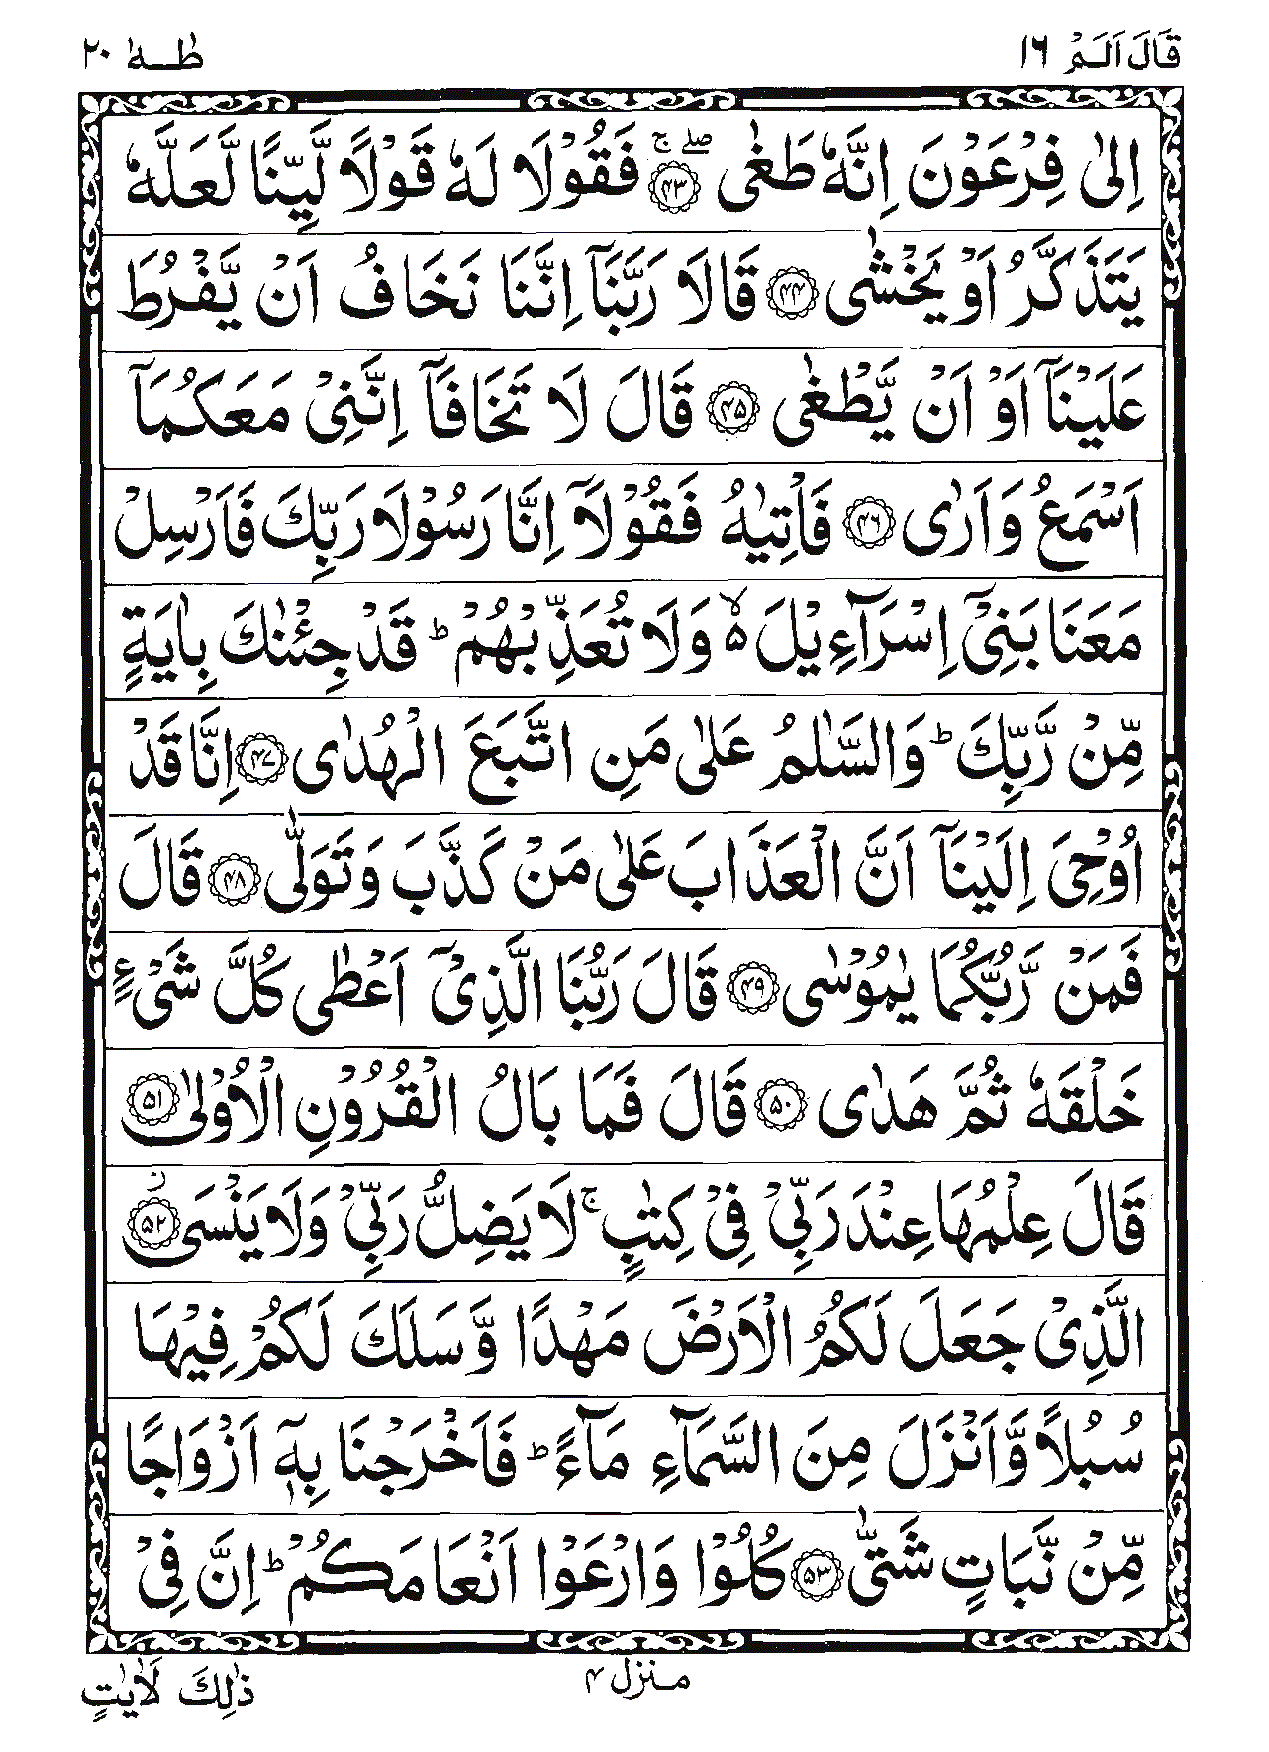 قَالَ اَلَمْ ١٦ طٰهٰ ٢٠
اِلٰى فِرْعَوْنَ اِنَّهٗ طَغٰى ۖۚ ﴿۴۳﴾ فَقُوْلَا لَهٗ قَوْلًا لَّيِّنًا لَّعَلَّهٗ
يَتَذَكَّرُ اَوْ يَخْشٰى ﴿۴۴﴾ قَالَا رَبَّنَآ اِنَّنَا نَخَافُ اَنْ يَّفْرُطَ
عَلَيْنَآ اَوْ اَنْ يَّطْغٰى ﴿۴۵﴾ قَالَ لَا تَخَافَآ اِنَّنِىْ مَعَكُمَآ
اَسْمَعُ وَاَرٰى ﴿۴۶﴾ فَاْتِيٰهُ فَقُوْلَآ اِنَّا رَسُوْلَا رَبِّكَ فَاَرْسِلْ
مَعَنَا بَنِىْٓ اِسْرَآءِيْلَ ۙ۵ وَلَا تُعَذِّبْهُمْ ؕ قَدْ جِئْنٰكَ بِاٰيَةٍ
مِّنْ رَّبِّكَ ؕ وَالسَّلٰمُ عَلٰى مَنِ اتَّبَعَ الْهُدٰى ﴿۴۷﴾ اِنَّا قَدْ
اُوْحِىَ اِلَيْنَآ اَنَّ الْعَذَابَ عَلٰى مَنْ كَذَّبَ وَتَوَلّٰى ﴿۴۸﴾ قَالَ
فَمَنْ رَّبُّكُمَا يٰمُوْسٰى ﴿۴۹﴾ قَالَ رَبُّنَا الَّذِىْٓ اَعْطٰى كُلَّ شَىْءٍ
خَلْقَهٗ ثُمَّ هَدٰى ﴿۵۰﴾ قَالَ فَمَا بَالُ الْقُرُوْنِ الْاُوْلٰى ﴿۵۱﴾
قَالَ عِلْمُهَا عِنْدَ رَبِّىْ فِىْ كِتٰبٍ ۚ لَا يَضِلُّ رَبِّىْ وَلَا يَنْسَى ز ﴿۵۲﴾
الَّذِىْ جَعَلَ لَكُمُ الْاَرْضَ مَهْدًا وَّسَلَكَ لَكُمْ فِيْهَا
سُبُلًا وَّاَنْزَلَ مِنَ السَّمَآءِ مَآءً ؕ فَاَخْرَجْنَا بِهٖٓ اَزْوَاجًا
مِّنْ نَّبَاتٍ شَتّٰى ﴿۵۳﴾ كُلُوْا وَارْعَوْا اَنْعَامَكُمْ ؕ اِنَّ فِىْ
منزل ۴
ذٰلِكَ لَاٰيٰتٍ